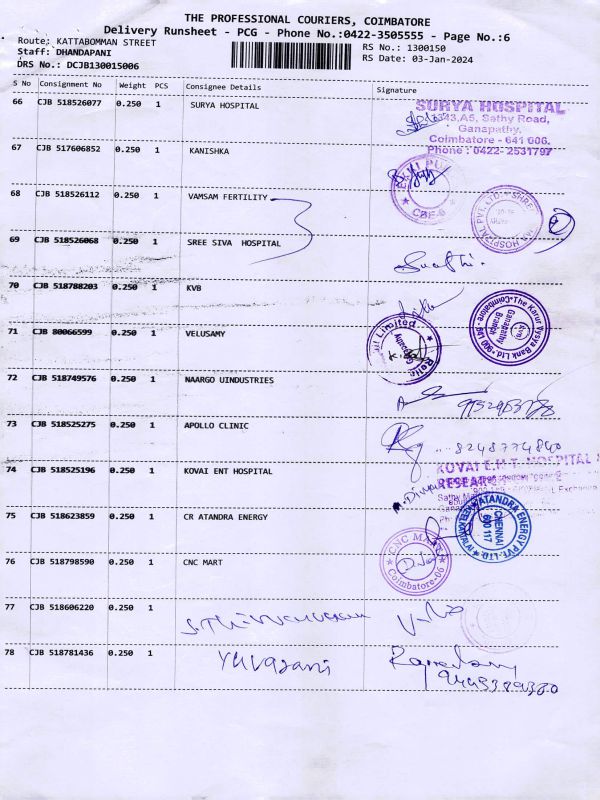 THE PROFESSIONAL COURIERS, COIMBATORE
Delivery Runsheet - PCG - Phone No.:0422-3505555 - Page No.:6
Route: KATTABOMMAN STREET
Staff: DHANDAPANI
DRS No.: DCJB130015006
RS No.: 1300150
RS Date: 03-Jan-2024
S No Consignment No Weight PCS Consignee Details Signature
66 CJB 518526077 0.250 1 SURYA HOSPITAL
SURYA HOSPITAL
Sathy Road,
Ganapathy,
Coimbatore - 641 006.
Phone : 0422- 2531797
67 CJB 517606852 0.250 1 KANISHKA
CBE-6
68 CJB 518526112 0.250 1 VAMSAM FERTILITY
HOSPITAL PVT. LTD.
69 CJB 518526068 0.250 1 SREE SIVA HOSPITAL
70 CJB 518788203 0.250 1 KVB
The Karur Vysya Bank Ltd.
Ganapathy
Branch
71 CJB 80066599 0.250 1 VELUSAMY
Limited
72 CJB 518749576 0.250 1 NAARGO UINDUSTRIES
73 CJB 518525275 0.250 1 APOLLO CLINIC
8248774840
74 CJB 518525196 0.250 1 KOVAI ENT HOSPITAL
KOVAI E.N.T. HOSPITAL
RESEARCH
75 CJB 518623859 0.250 1 CR ATANDRA ENERGY
ATANDRA ENERGY PVT. LTD.
CHENNAI
600 117
76 CJB 518798590 0.250 1 CNC MART
CNC MART
Coimbatore-06
77 CJB 518606220 0.250 1
78 CJB 518781436 0.250 1 Yuvarani